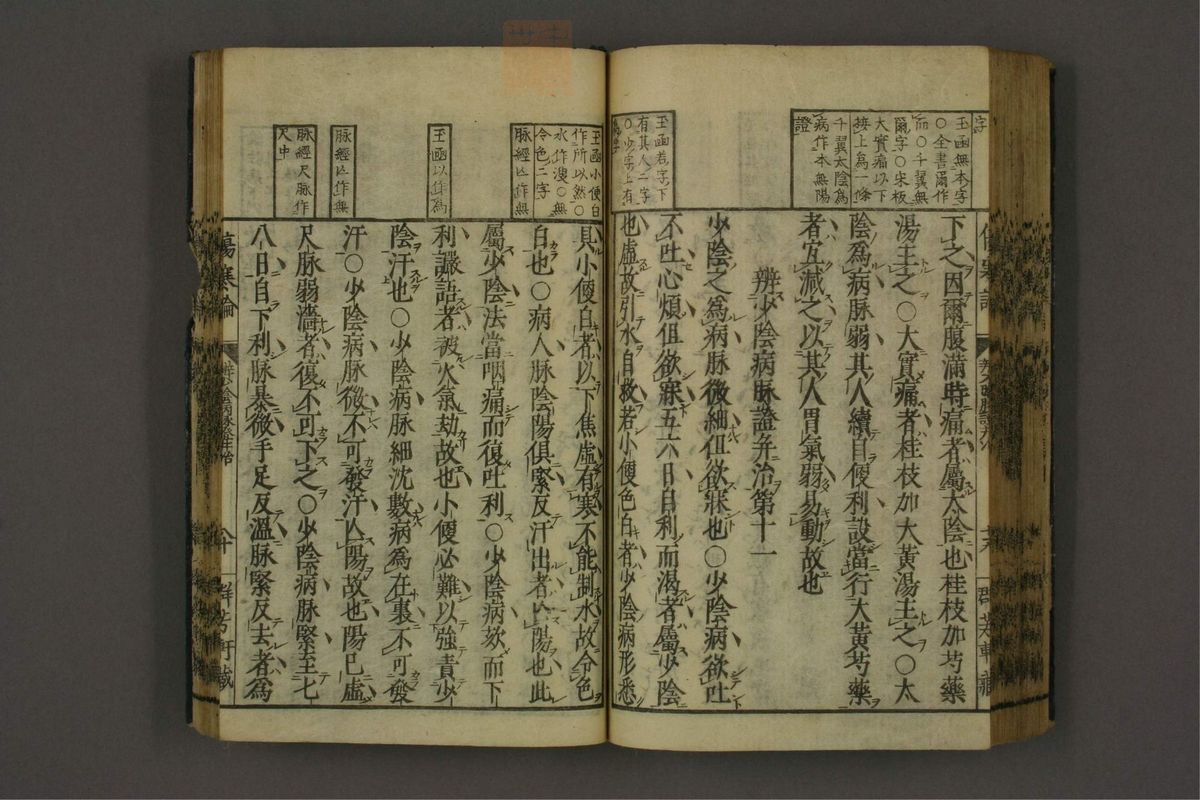 字
玉函無本字
○全書爾作
而○千翼無
爾字○宋板
大實痛以下
接上爲一條
千翼太陰爲
病作本無陽
證
下之因爾腹滿時痛者屬太陰也桂枝加芍藥
湯主之○大實痛者桂枝加大黃湯主之○太
陰爲病脉弱其人續自便利設當行大黃芍藥
者宜減之以其人胃氣弱易動故也
辨少陰病脉證并治第十一
少陰之爲病脉微細但欲寐也○少陰病欲吐
玉函若字下
有其人二字
○少字上有
不吐心煩但欲寐五六日自利而渴者屬少陰
也虛故引水自救若小便色白者少陰病形悉
玉函小便白
作所以然○
水作溲○無
令色二字
脉經亾作無
具小便白者以下焦虛有寒不能制水故令色
白也○病人脉陰陽俱緊反汗出者亾陽也此
屬少陰法當咽痛而復吐利○少陰病欬而下
玉函以作爲
利讝語者被火氣劫故也小便必難以強責少
陰汗也○少陰病脉細沈數病爲在裏不可發
脉經亾作無
汗○少陰病脉微不可發汗亾陽故也陽已虛
脉經尺脉作
尺中
尺脉弱濇者復不可下之○少陰病脉緊至七
八日自下利脉暴微手足反溫脉緊反去者爲
傷寒論